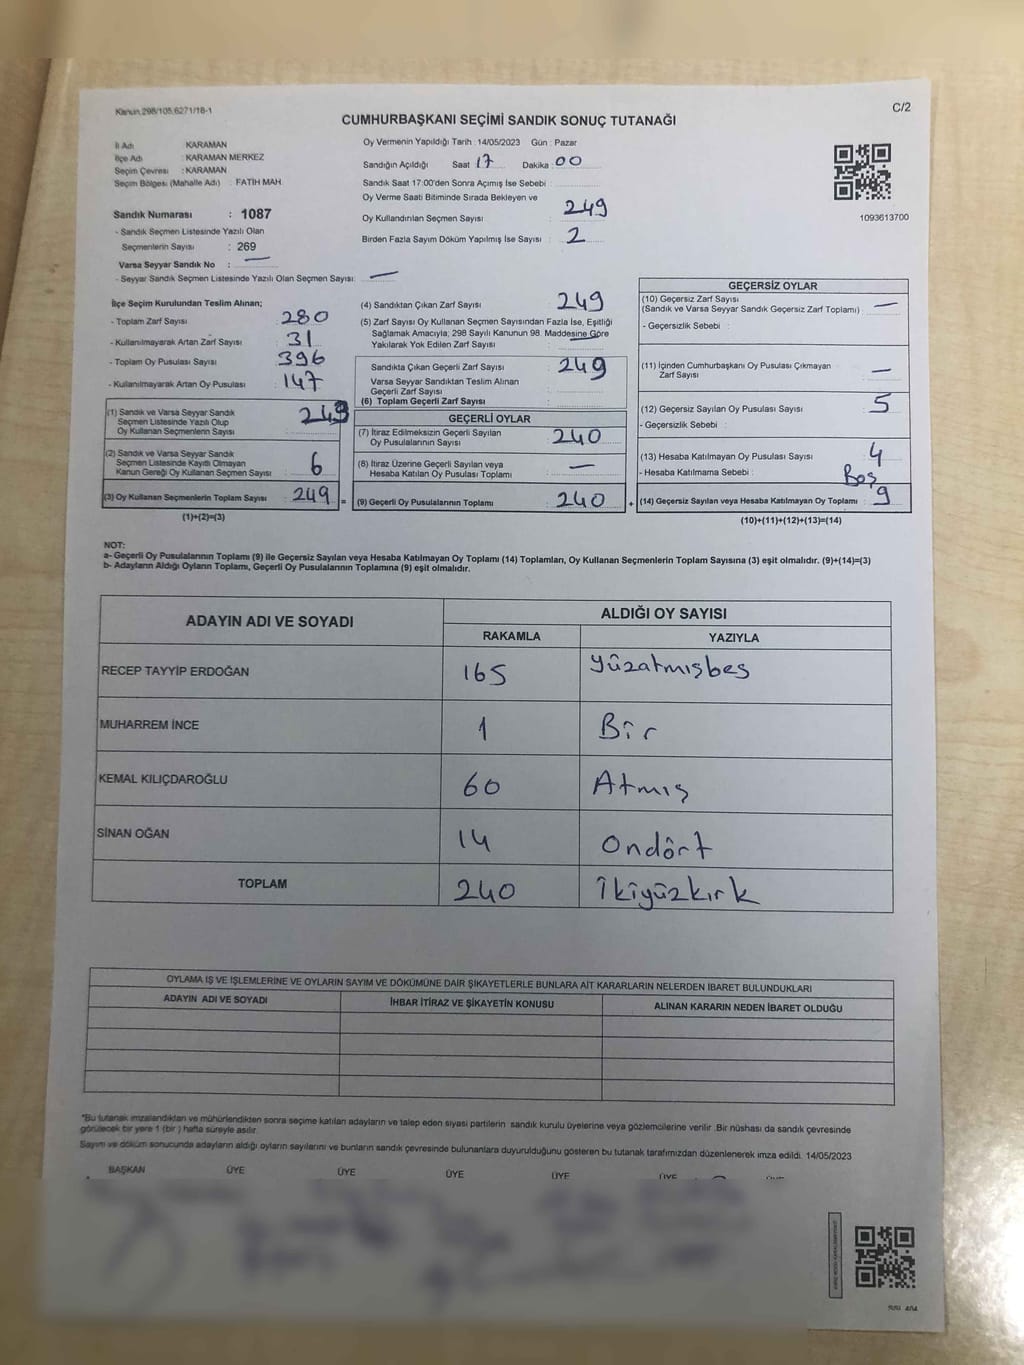 Kanun.298/105.6271/18-1
C/2
CUMHURBAŞKANI SEÇİMİ SANDIK SONUÇ TUTANAĞI
İl Adı KARAMAN
İlçe Adı : KARAMAN MERKEZ
Seçim Çevresi : KARAMAN
Seçim Bölgesi (Mahalle Adı) : FATİH MAH.
Sandık Numarası : 1087
- Sandık Seçmen Listesinde Yazılı Olan
Seçmenlerin Sayısı : 269
Varsa Seyyar Sandık No : —
- Seyyar Sandık Seçmen Listesinde Yazılı Olan Seçmen Sayısı: —
Oy Vermenin Yapıldığı Tarih : 14/05/2023 Gün : Pazar
Sandığın Açıldığı Saat 17 Dakika : 00
Sandık Saat 17:00'den Sonra Açımış İse Sebebi :
Oy Verme Saati Bitiminde Sırada Bekleyen ve
Oy Kullandırılan Seçmen Sayısı : 249
Birden Fazla Sayım Döküm Yapılmış İse Sayısı : 2
1093613700
İlçe Seçim Kurulundan Teslim Alınan;
- Toplam Zarf Sayısı : 280
- Kullanılmayarak Artan Zarf Sayısı : 31
- Toplam Oy Pusulası Sayısı : 396
- Kullanılmayarak Artan Oy Pusulası : 147
(1) Sandık ve Varsa Seyyar Sandık
Seçmen Listesinde Yazılı Olup
Oy Kullanan Seçmenlerin Sayısı :
(2) Sandık ve Varsa Seyyar Sandık
Seçmen Listesinde Kayıtlı Olmayan
Kanun Gereği Oy Kullanan Seçmen Sayısı : 6
(3) Oy Kullanan Seçmenlerin Toplam Sayısı : 249 =
(1)+(2)=(3)
(4) Sandıktan Çıkan Zarf Sayısı : 249
(5) Zarf Sayısı Oy Kullanan Seçmen Sayısından Fazla İse, Eşitliği
Sağlamak Amacıyla; 298 Sayılı Kanunun 98. Maddesine Göre
Yakılarak Yok Edilen Zarf Sayısı : —
Sandıkta Çıkan Geçerli Zarf Sayısı : 249
Varsa Seyyar Sandıktan Teslim Alınan
Geçerli Zarf Sayısı :
(6) Toplam Geçerli Zarf Sayısı :
GEÇERLİ OYLAR
(7) İtiraz Edilmeksizin Geçerli Sayılan
Oy Pusulalarının Sayısı : 240
(8) İtiraz Üzerine Geçerli Sayılan veya
Hesaba Katılan Oy Pusulası Toplamı : —
(9) Geçerli Oy Pusulalarının Toplamı : 240 +
GEÇERSİZ OYLAR
(10) Geçersiz Zarf Sayısı
(Sandık ve Varsa Seyyar Sandık Geçersiz Zarf Toplamı) : —
- Geçersizlik Sebebi :
(11) İçinden Cumhurbaşkanı Oy Pusulası Çıkmayan
Zarf Sayısı : —
(12) Geçersiz Sayılan Oy Pusulası Sayısı : 5
- Geçersizlik Sebebi :
(13) Hesaba Katılmayan Oy Pusulası Sayısı : 4
- Hesaba Katılmama Sebebi : Boş
(14) Geçersiz Sayılan veya Hesaba Katılmayan Oy Toplamı : 9
(10)+(11)+(12)+(13)=(14)
NOT:
a- Geçerli Oy Pusulalarının Toplamı (9) ile Geçersiz Sayılan veya Hesaba Katılmayan Oy Toplamı (14) Toplamları, Oy Kullanan Seçmenlerin Toplam Sayısına (3) eşit olmalıdır. (9)+(14)=(3)
b- Adayların Aldığı Oyların Toplamı, Geçerli Oy Pusulalarının Toplamına (9) eşit olmalıdır.
ADAYIN ADI VE SOYADI
ALDIĞI OY SAYISI
RAKAMLA YAZIYLA
RECEP TAYYİP ERDOĞAN 165 yüzatmışbeş
MUHARREM İNCE 1 Bir
KEMAL KILIÇDAROĞLU 60 Atmış
SİNAN OĞAN 14 Ondört
TOPLAM 240 İkiyüzkırk
OYLAMA İŞ VE İŞLEMLERİNE VE OYLARIN SAYIM VE DÖKÜMÜNE DAİR ŞİKAYETLERLE BUNLARA AİT KARARLARIN NELERDEN İBARET BULUNDUKLARI
ADAYIN ADI VE SOYADI İHBAR İTİRAZ VE ŞİKAYETİN KONUSU ALINAN KARARIN NEDEN İBARET OLDUĞU
*Bu tutanak imzalandıktan ve mühürlendikten sonra seçime katılan adayların ve talep eden siyasi partilerin sandık kurulu üyelerine veya gözlemcilerine verilir .Bir nüshası da sandık çevresinde
görülecek bir yere 1 (bir ) hafta süreyle asılır.
Sayım ve döküm sonucunda adayların aldığı oyların sayılarını ve bunların sandık çevresinde bulunanlara duyurulduğunu gösteren bu tutanak tarafımızdan düzenlenerek imza edildi. 14/05/2023
BAŞKAN ÜYE ÜYE ÜYE ÜYE ÜYE